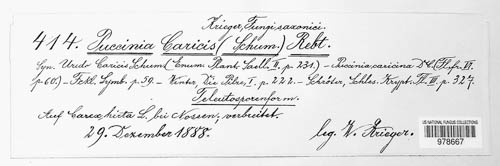 Krieger, Fungi saxonici.
414. Puccinia Caricis (Schum.) Rebt.
Syn. Uredo Caricis Schum. (Enum. Plant. Saell. II. p. 231.) – Puccinia caricina DC. (Fl. fr. VI. p. 60.) – Fckl. Symb. p. 59. – Winter, Die Pilze, I. p. 222. – Schröter, Schles. Krypt. Fl. III. p. 327.
Teleutosporenform.
Auf Carex hirta L. bei Nossen, verbreitet.
29. Dezember 1888. leg. W. Krieger.
US NATIONAL FUNGUS COLLECTIONS
978667